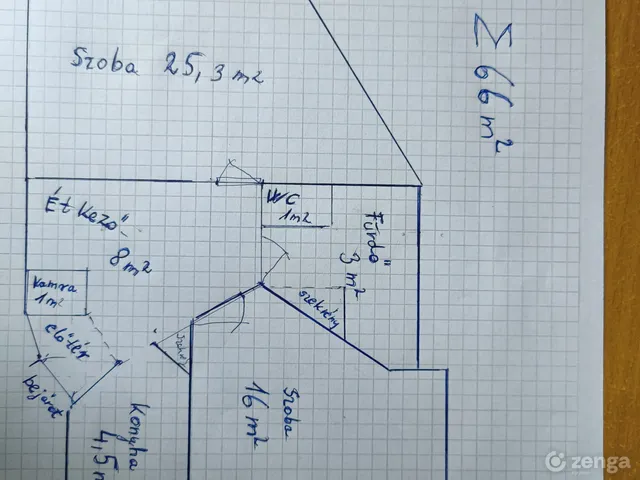 Szoba 25,3 m²
Σ 66 m²
Étkező
8 m²
WC
1m²
Fürdő
3 m²
Kamra
1m²
előtér
bejárat
szekrény
Szoba
16 m²
Konyha
4,5 m
zenga